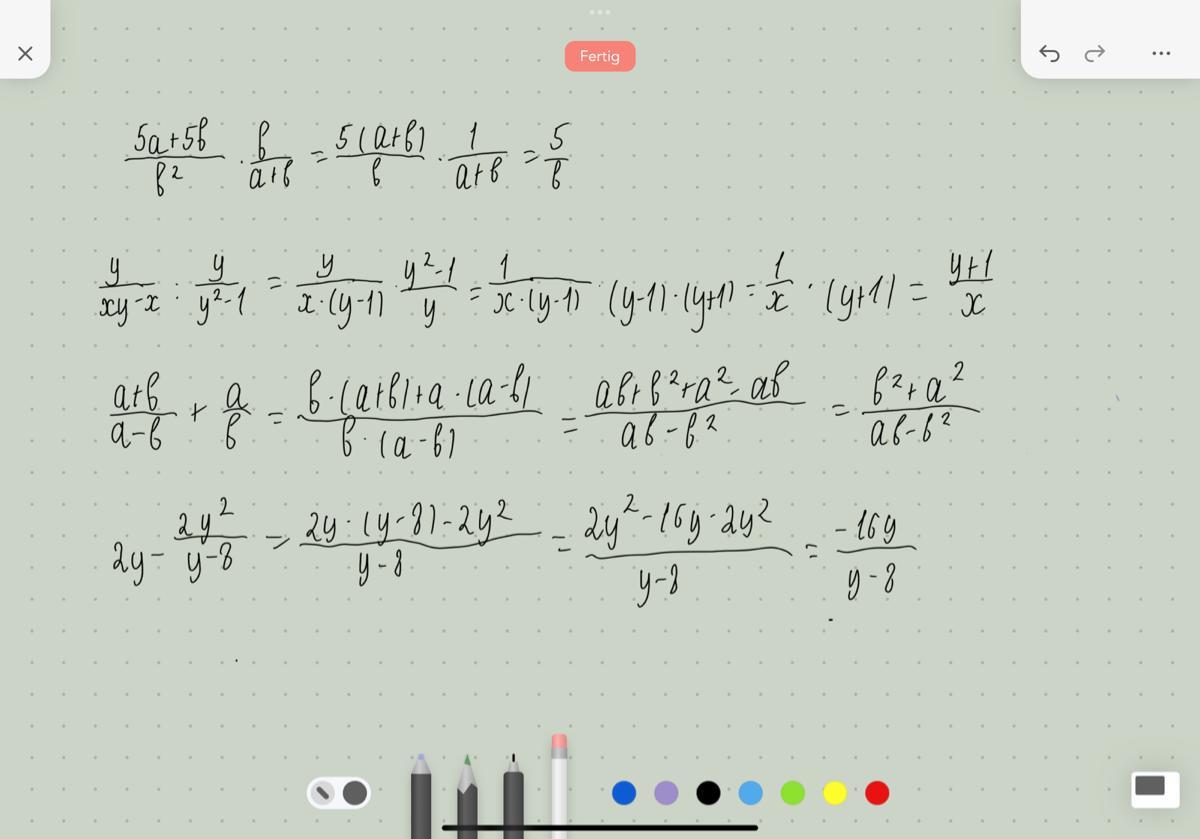 Fertig
(5a+5b)/b² · b/(a+b) = 5(a+b)/b · 1/(a+b) = 5/b
y/(xy-x) : y/(y²-1) = y/(x·(y-1)) · (y²-1)/y = 1/(x·(y-1)) · (y-1)·(y+1) = 1/x · (y+1) = (y+1)/x
(a+b)/(a-b) + a/b = (b·(a+b)+a·(a-b))/(b·(a-b)) = (ab+b²+a²-ab)/(ab-b²) = (b²+a²)/(ab-b²)
2y - 2y²/(y-8) = (2y·(y-8)-2y²)/(y-8) = (2y²-16y-2y²)/(y-8) = -16y/(y-8)